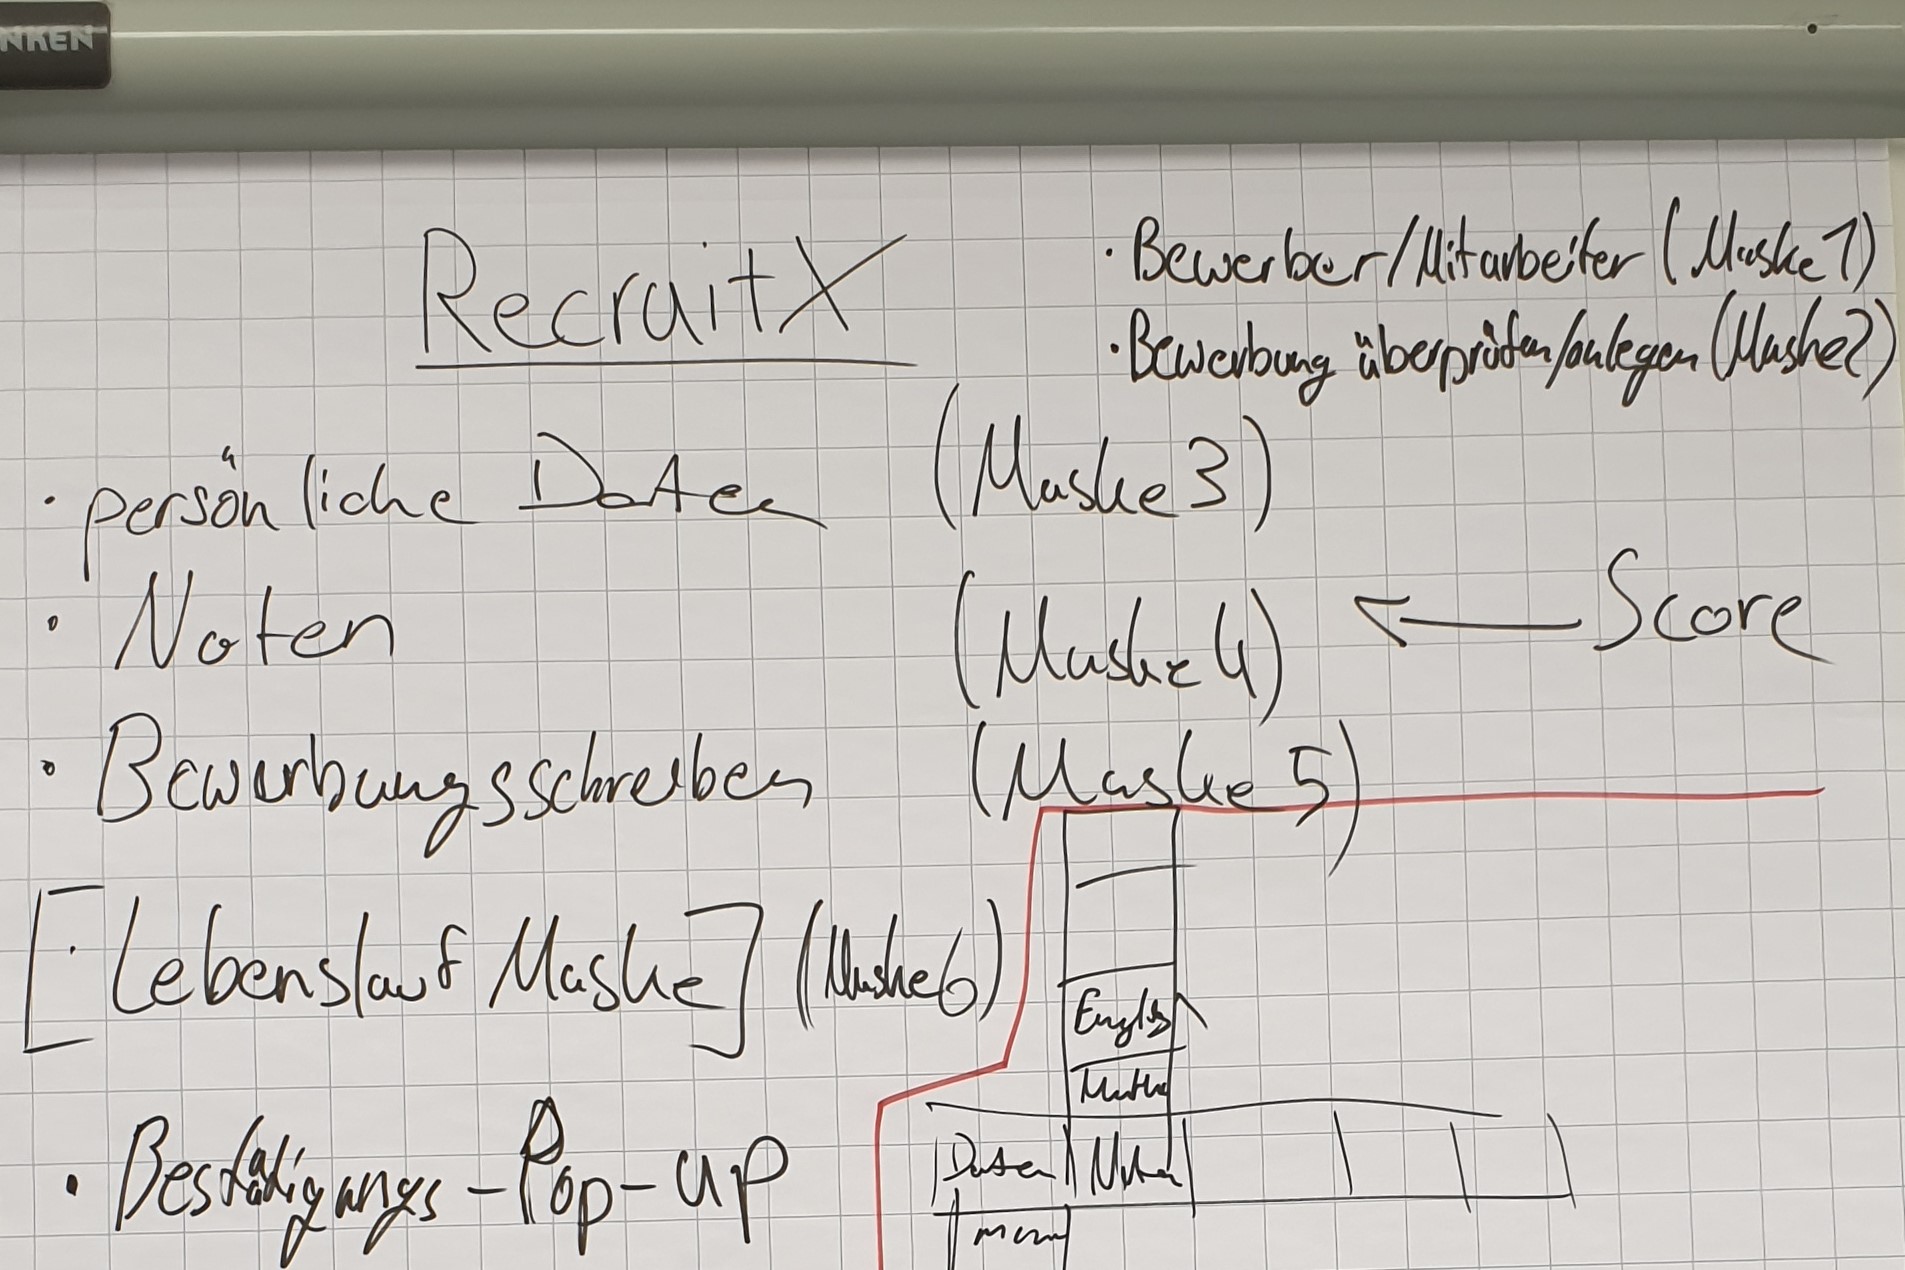 NKEN
RecruitX
· Bewerber/Mitarbeiter (Maske 1)
· Bewerbung überprüfen/anlegen (Maske 2)
· persönliche Daten (Maske 3)
· Noten (Maske 4) ← Score
· Bewerbungsschreiben (Maske 5)
[· Lebenslauf Maske] (Maske 6)
· Bestätigungs-Pop-up
Englisch
Mathe
Daten Noten